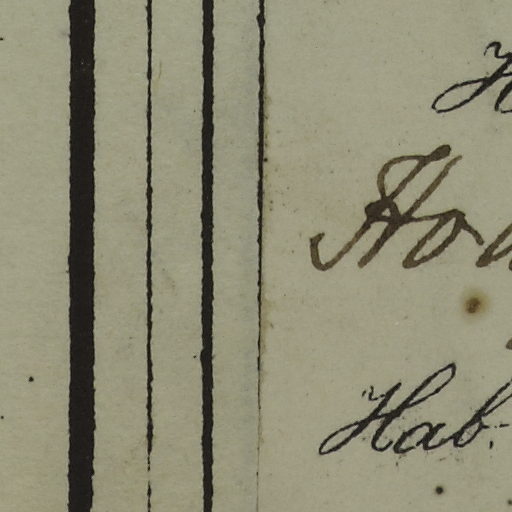 H
Ho
Hab.